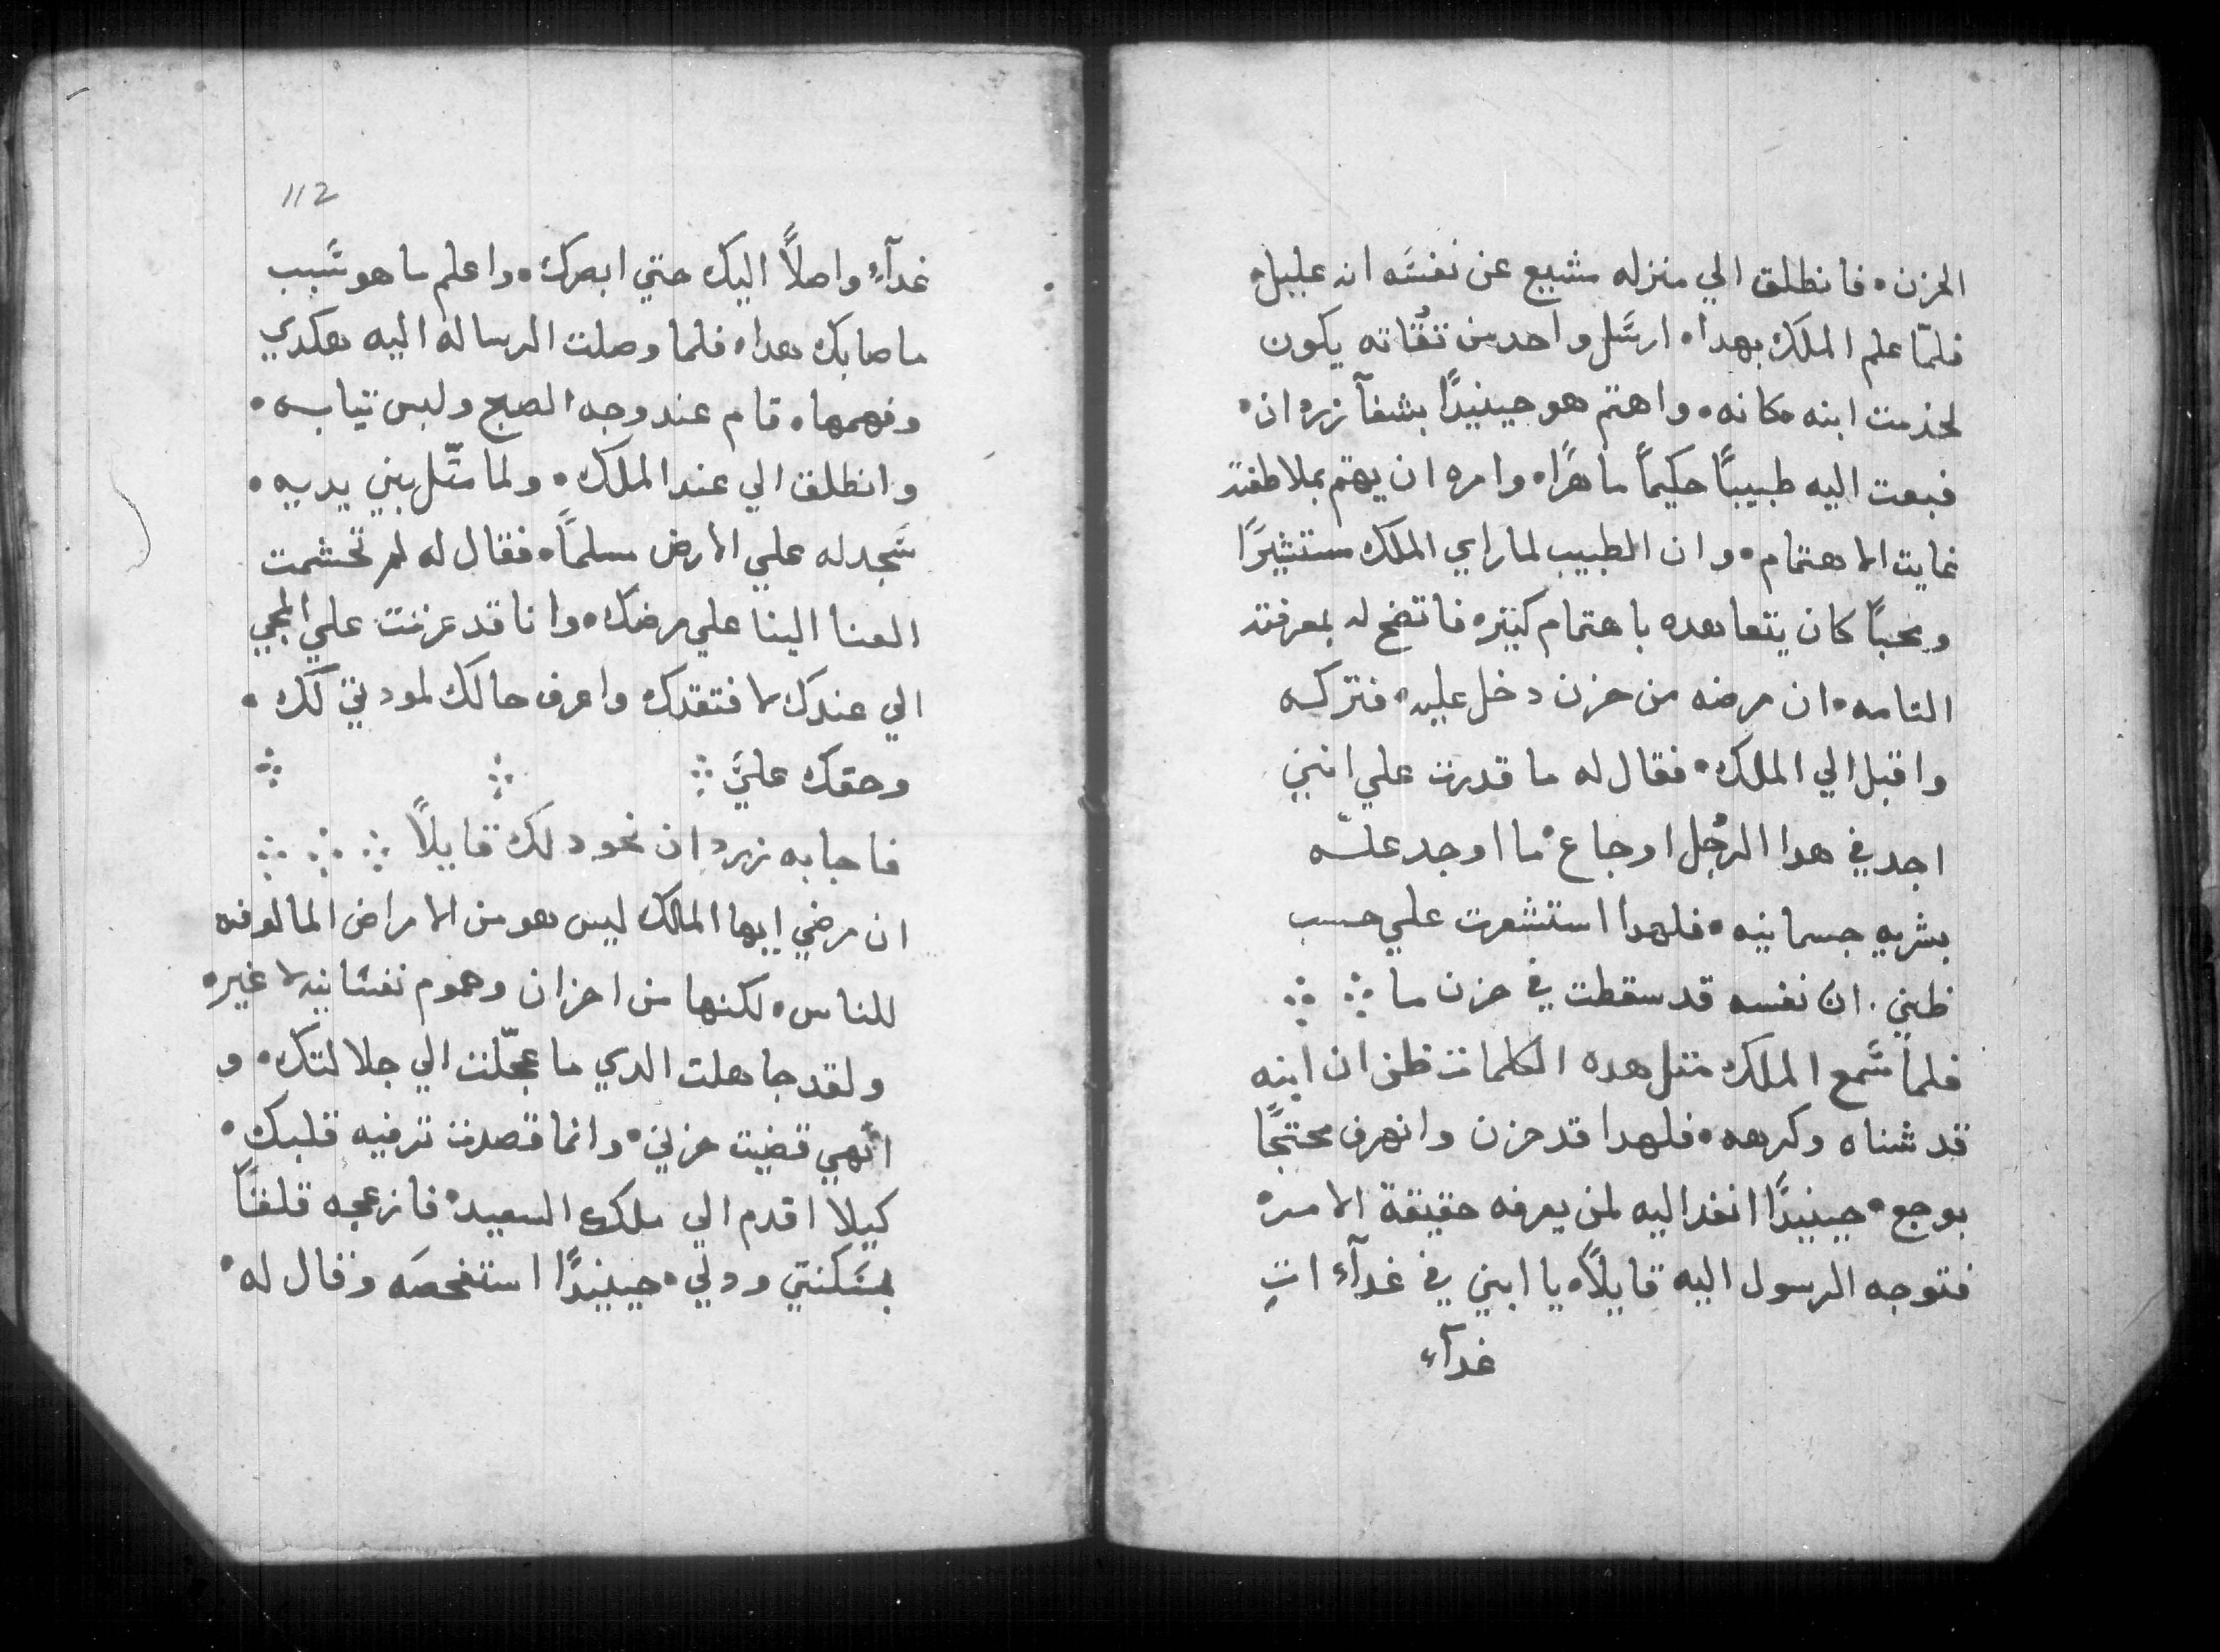 الحزن٠ فانطلق الي منزله مشيع عن نفسَه انه عليل٠
فلمّا علم الملك بهدا٠ ارسَل واحد من تقُاته يكون
لخدمت ابنه مكانه٠ واهتم هو حينيدًا بشفآ زردان٠
فبعت اليه طبيبًا حكيمًا ماهرًا٠ وامره ان يهتم بملاطفته
غايت الاهتمام٠ وان الطبيب لما راي الملك مستثيرًا
ومحبًا كان يتعاهده باهتمام كتير٠ فاتضح له بمعرفته
التامه٠ ان مرضه من حزن دخل عليه٠ فتركه
واقبل الي الملك٠ فقال له ما قدرت علي انني
اجد في هدا الرجُل اوجاع٠ ما اوجد علّه
بشريه جسمانيه٠ فلهدا استشعرت علي حسب
ظني. ان نفسه قد سقطت في حزن ما ؞ ؞
فلما سَمع الملك متل هده الكلمات ظن ان ابنه
قد شناه وكرهه٠ فلهدا قد حزن وانصرف محتجًا
بوجع٠ حينيدًا انفد اليه لمن يعرفه حقيقة الامر٠
فتوجه الرسول اليه قايلاً٠ يا ابني في غدآء اتِ
غدآء
112
غدآءِ واصلاً اليك حتي ابصرك٠ واعلم ما هو سَبب
ما صابك هدا٠ فلما وصلت الرساله اليه هكدي
وفهمها٠ قام عند وجه الصبح ولبس تيابه٠
وانطلق الي عند الملك٠ ولما متّل بين يديه٠
سَجد له علي الارض مسلمًا٠ فقال له لم تحشمت
العنا الينا علي مرضك٠ وانا قد عزمت علي المجي
الي عندك لافتقدك واعرف حالك لمودتي لك٠
وحقك عليَّ ؞ ؞ ؞
فاجابه زردان نحو دلك قايلاً ؞ ؞ ؞
ان مرضي ايها المالك ليس هو من الامراض المالوفه
للناس٠ لكنها من احزان وهموم نفسَانيه لا غير٠
ولقد جاهلت الدي ما عجّلت الي جلالتك٠ و
انهي قضيت حزني٠ وانما قصدت ترفيه قلبك٠
كيلا اقدم الي ملكك السعيد٠ فازعجه قلقًا
بمسَكنتي ودلي٠ حينيدًا استفحصَه وقال له٠